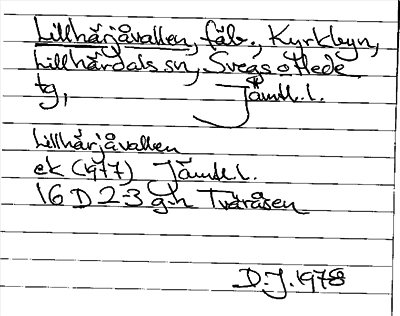 Lillhärjåvallen, fäb., Kyrkbyn,
Lillhärdals sn, Svegs o Hede
tg, Jämtl. l.
Lillhärjåvallen
ek (1977) Jämtl. l.
16 D 2-3 g-h Tvåråsen
D.J. 1978